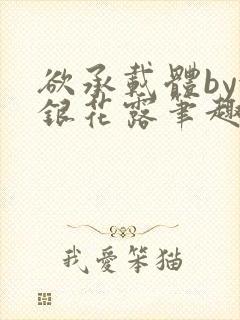 欲承載體by
銀花露筆趣
我愛笨猫